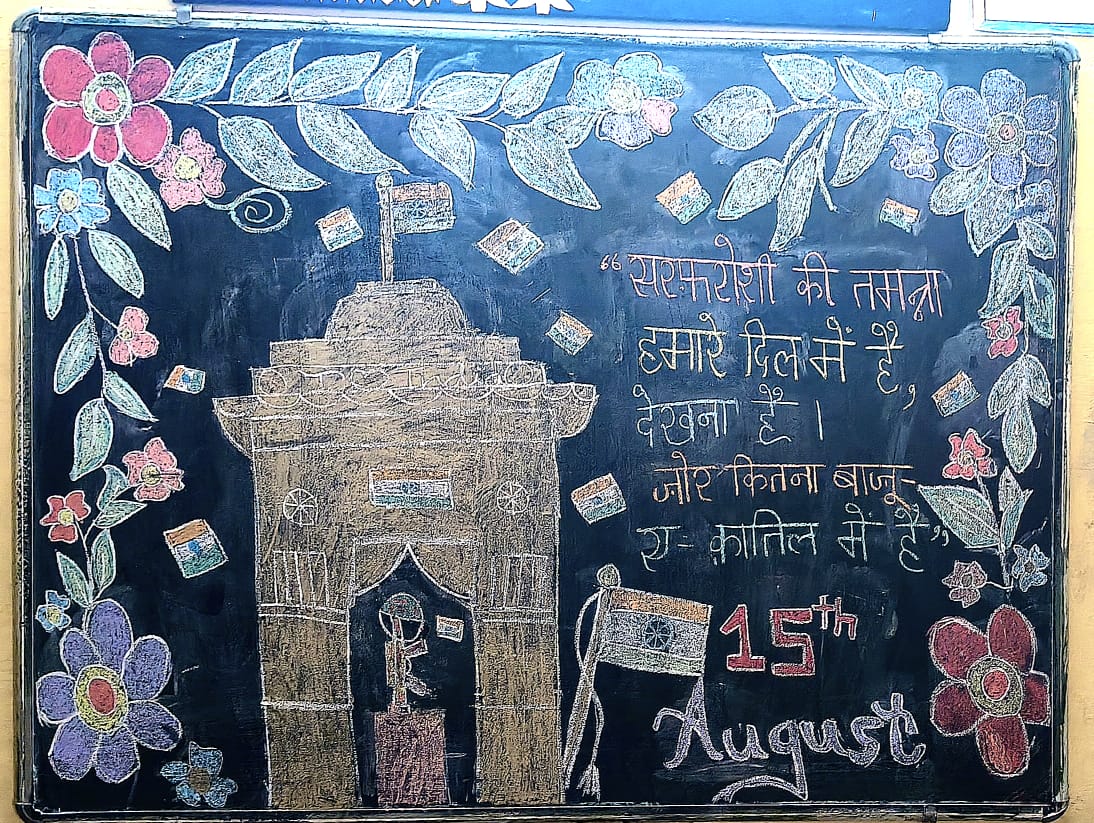 “सरफ़रोशी की तमन्ना
हमारे दिल में है,
देखना है ।
जोर कितना बाजू-
ए-क़ातिल में है”
15th
August